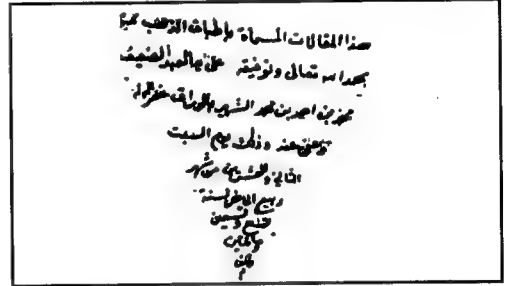 هذا المقالات المسماة باطباق الذهب
بحمد الله تعالى وتوفيقه على يد العبد الضعيف
بن احمد بن محمد الشهير غفر الله له
وعفى عنه وذلك يوم السبت
الثاني والعشرين من شهر
ربيع لسنة
تسع وتسعين